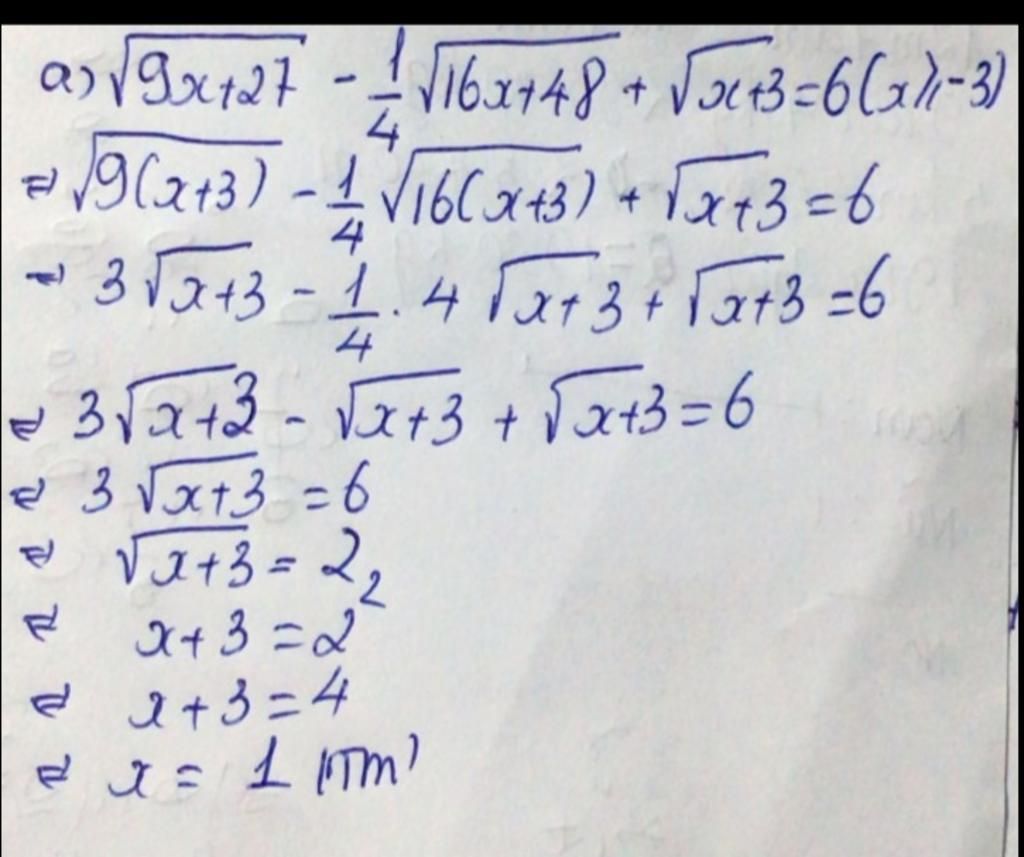 a) √(9x+27) - 1/4 √(16x+48) + √(x+3) = 6 (x ≥ -3)
⇔ √(9(x+3)) - 1/4 √(16(x+3)) + √(x+3) = 6
⇔ 3√(x+3) - 1/4 . 4√(x+3) + √(x+3) = 6
⇔ 3√(x+3) - √(x+3) + √(x+3) = 6
⇔ 3√(x+3) = 6
⇔ √(x+3) = 2
⇔ x+3 = 2²
⇔ x+3 = 4
⇔ x = 1 (Tm)